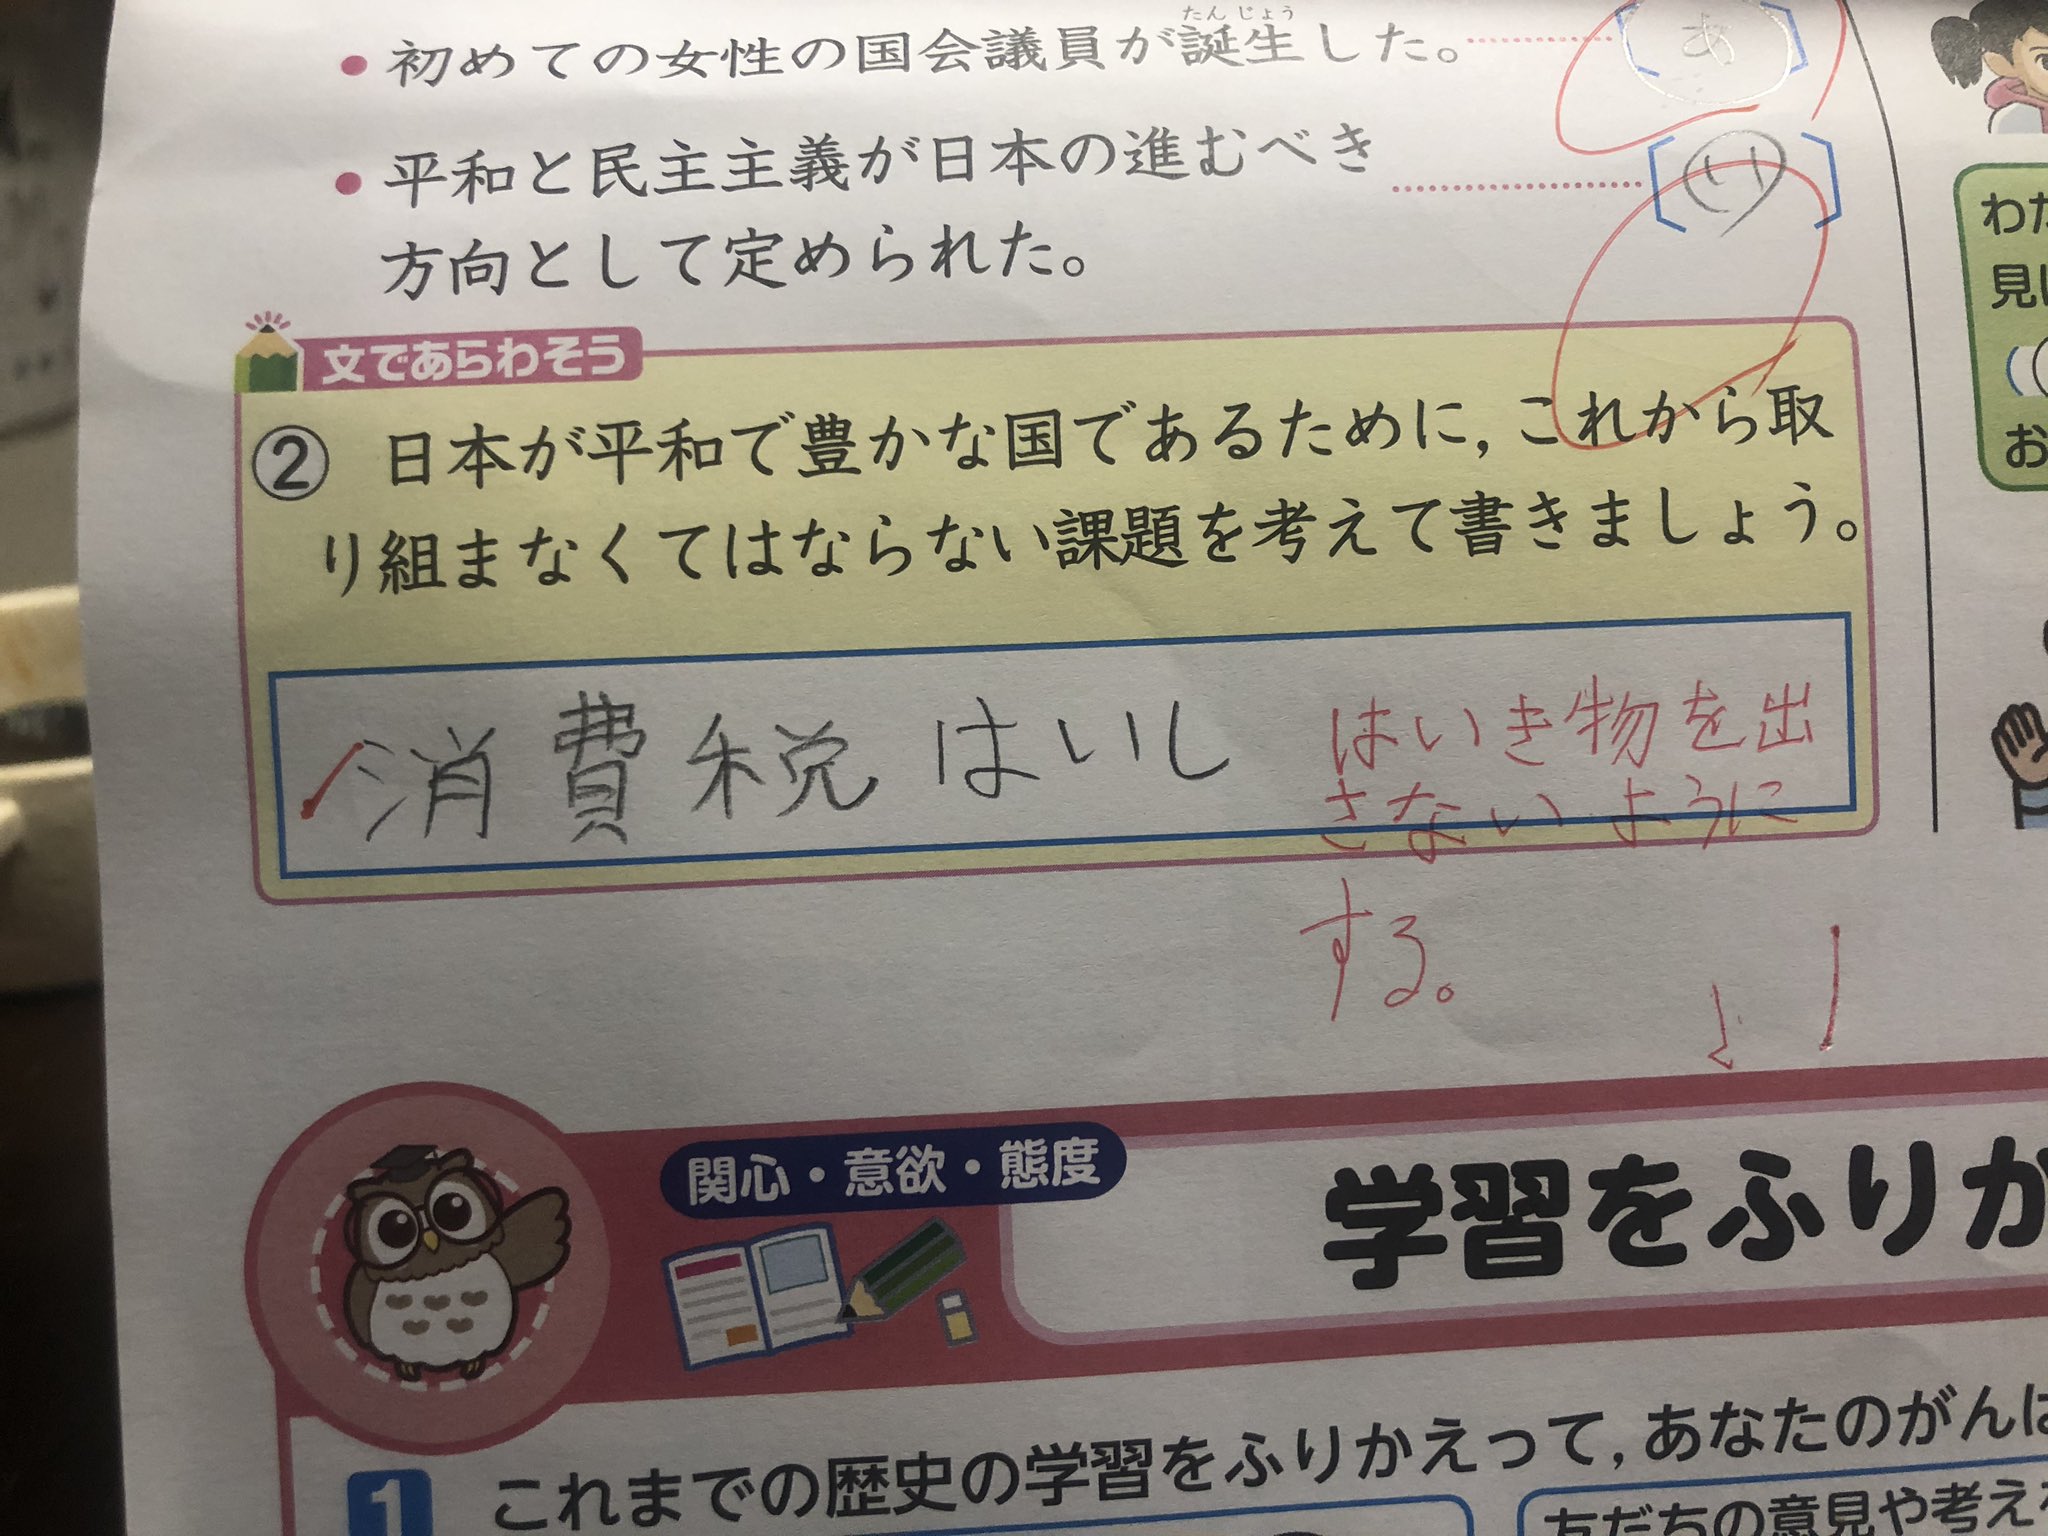 たんじょう
・初めての女性の国会議員が誕生した。 [あ]
・平和と民主主義が日本の進むべき [い]
方向として定められた。
文であらわそう
② 日本が平和で豊かな国であるために,これから取
り組まなくてはならない課題を考えて書きましょう。
消費税はいし
はいき物を出
さないように
する。
わた
見に
お
関心・意欲・態度
学習をふりか
1 これまでの歴史の学習をふりかえって,あなたのがんば
友だちの意見や考えを